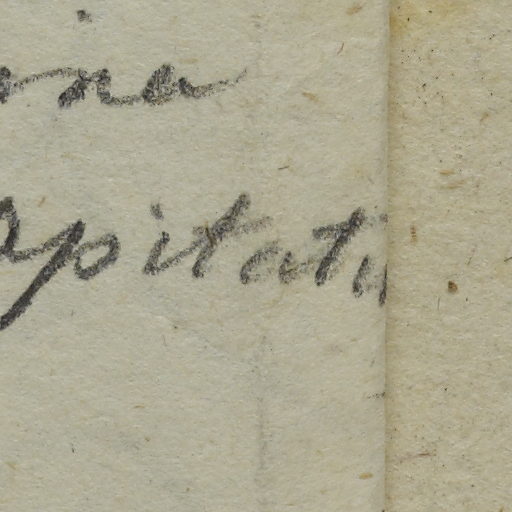 ina
apitatu